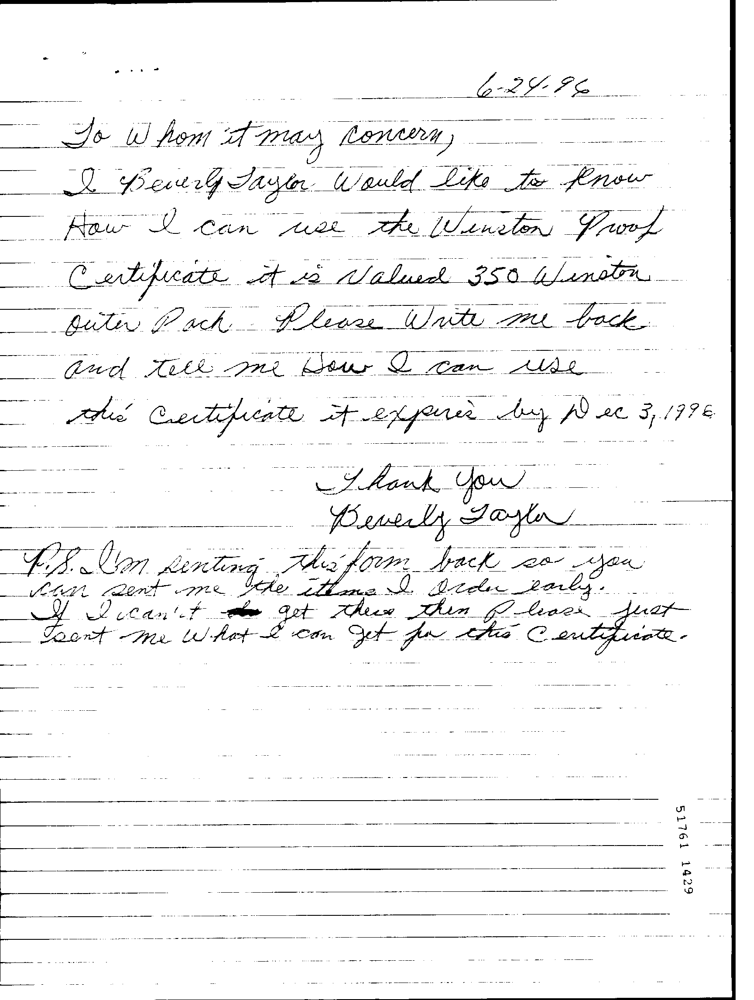 6-24-96
To Whom it may concern,
I Beverly Taylor Would like to know
How I can use the Winston Proof
Certificate it is Valued 350 Winston
outer Pack Please Write me back
and tell me How I can use
this Certificate it expires by Dec 3, 1996
Thank You
Beverly Taylor
P.S. I'm senting this form back so you
can sent me the items I order early.
If I can't get these then Please just
sent me What I can get for this Certificate.
51761 1429